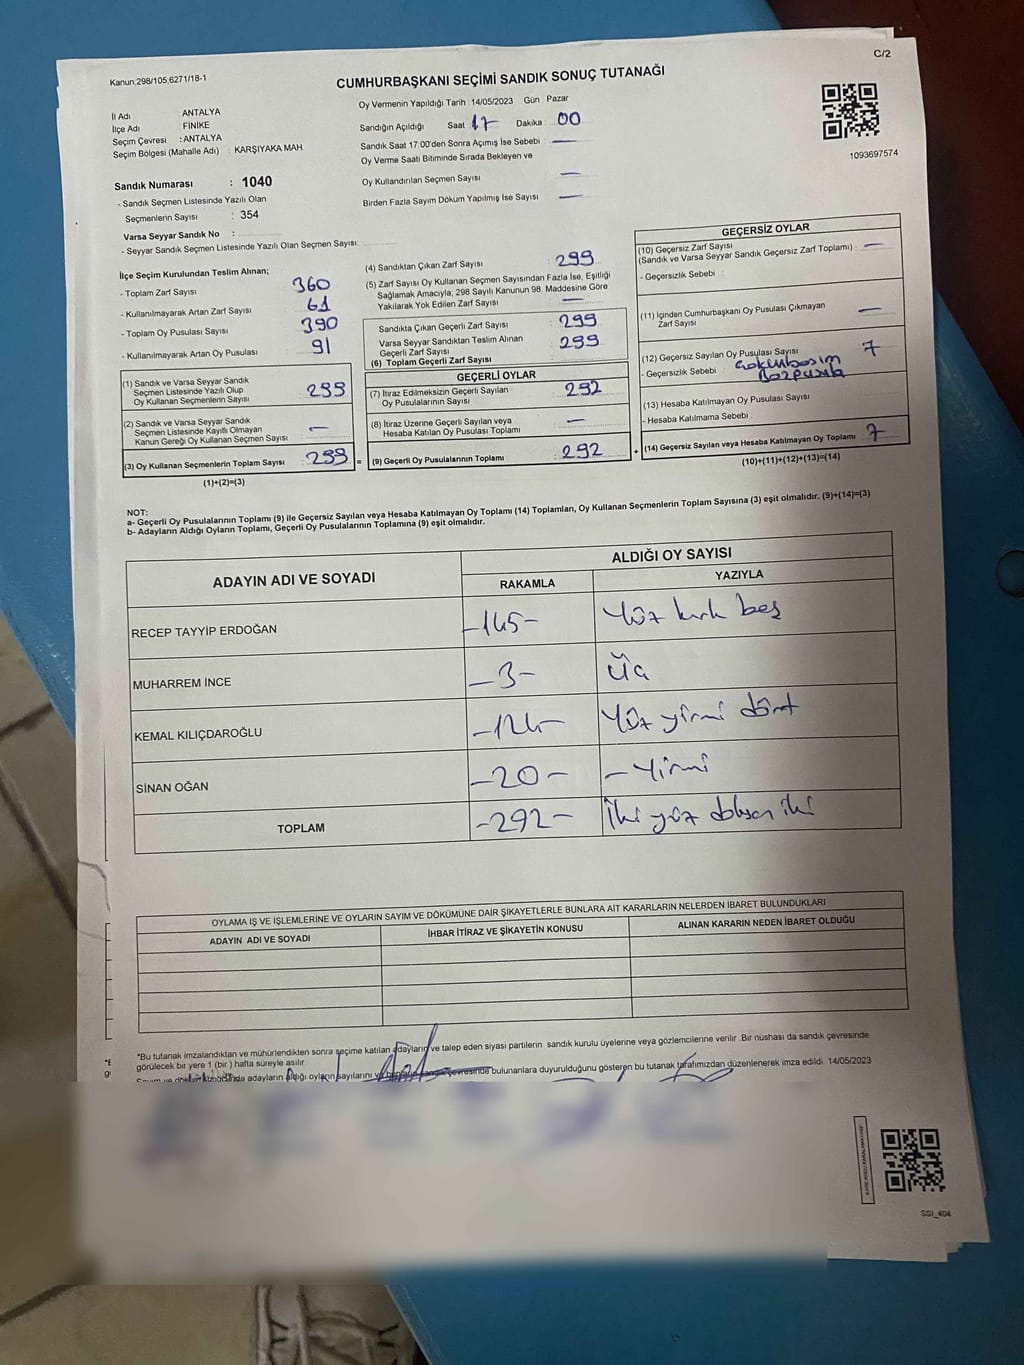 C/2
Kanun,298/105,6271/18-1
CUMHURBAŞKANI SEÇİMİ SANDIK SONUÇ TUTANAĞI
İl Adı : ANTALYA
İlçe Adı FİNİKE
Seçim Çevresi : ANTALYA
Seçim Bölgesi (Mahalle Adı) : KARŞIYAKA MAH.
Sandık Numarası : 1040
- Sandık Seçmen Listesinde Yazılı Olan
Seçmenlerin Sayısı : 354
Varsa Seyyar Sandık No :
- Seyyar Sandık Seçmen Listesinde Yazılı Olan Seçmen Sayısı:
Oy Vermenin Yapıldığı Tarih 14/05/2023 Gün : Pazar
Sandığın Açıldığı Saat 17 Dakika : 00
Sandık Saat 17:00'den Sonra Açımış İse Sebebi : —
Oy Verme Saati Bitiminde Sırada Bekleyen ve
Oy Kullandırılan Seçmen Sayısı —
Birden Fazla Sayım Döküm Yapılmış İse Sayısı —
1093697574
İlçe Seçim Kurulundan Teslim Alınan;
- Toplam Zarf Sayısı 360
- Kullanılmayarak Artan Zarf Sayısı 61
- Toplam Oy Pusulası Sayısı 390
- Kullanılmayarak Artan Oy Pusulası 91
(1) Sandık ve Varsa Seyyar Sandık
Seçmen Listesinde Yazılı Olup
Oy Kullanan Seçmenlerin Sayısı 299
(2) Sandık ve Varsa Seyyar Sandık
Seçmen Listesinde Kayıtlı Olmayan
Kanun Gereği Oy Kullanan Seçmen Sayısı —
(3) Oy Kullanan Seçmenlerin Toplam Sayısı 299 =
(1)+(2)=(3)
(4) Sandıktan Çıkan Zarf Sayısı 299
(5) Zarf Sayısı Oy Kullanan Seçmen Sayısından Fazla İse, Eşitliği
Sağlamak Amacıyla; 298 Sayılı Kanunun 98. Maddesine Göre
Yakılarak Yok Edilen Zarf Sayısı —
Sandıkta Çıkan Geçerli Zarf Sayısı 299
Varsa Seyyar Sandıktan Teslim Alınan
Geçerli Zarf Sayısı 299
(6) Toplam Geçerli Zarf Sayısı
GEÇERLİ OYLAR
(7) İtiraz Edilmeksizin Geçerli Sayılan
Oy Pusulalarının Sayısı 292
(8) İtiraz Üzerine Geçerli Sayılan veya
Hesaba Katılan Oy Pusulası Toplamı —
(9) Geçerli Oy Pusulalarının Toplamı 292 +
GEÇERSİZ OYLAR
(10) Geçersiz Zarf Sayısı
(Sandık ve Varsa Seyyar Sandık Geçersiz Zarf Toplamı) : —
- Geçersizlik Sebebi :
(11) İçinden Cumhurbaşkanı Oy Pusulası Çıkmayan
Zarf Sayısı —
(12) Geçersiz Sayılan Oy Pusulası Sayısı 7
- Geçersizlik Sebebi :
(13) Hesaba Katılmayan Oy Pusulası Sayısı
- Hesaba Katılmama Sebebi :
(14) Geçersiz Sayılan veya Hesaba Katılmayan Oy Toplamı 7
(10)+(11)+(12)+(13)=(14)
NOT:
a- Geçerli Oy Pusulalarının Toplamı (9) ile Geçersiz Sayılan veya Hesaba Katılmayan Oy Toplamı (14) Toplamları, Oy Kullanan Seçmenlerin Toplam Sayısına (3) eşit olmalıdır. (9)+(14)=(3)
b- Adayların Aldığı Oyların Toplamı, Geçerli Oy Pusulalarının Toplamına (9) eşit olmalıdır.
ADAYIN ADI VE SOYADI ALDIĞI OY SAYISI
RAKAMLA YAZIYLA
RECEP TAYYİP ERDOĞAN -145- Yüz kırk beş
MUHARREM İNCE -3- Üç
KEMAL KILIÇDAROĞLU -124- Yüz yirmi dört
SİNAN OĞAN -20- -Yirmi
TOPLAM -292- İki yüz doksan iki
OYLAMA İŞ VE İŞLEMLERİNE VE OYLARIN SAYIM VE DÖKÜMÜNE DAİR ŞİKAYETLERLE BUNLARA AİT KARARLARIN NELERDEN İBARET BULUNDUKLARI
ADAYIN ADI VE SOYADI İHBAR İTİRAZ VE ŞİKAYETİN KONUSU ALINAN KARARIN NEDEN İBARET OLDUĞU
*Bu tutanak imzalandıktan ve mühürlendikten sonra seçime katılan adayların ve talep eden siyasi partilerin sandık kurulu üyelerine veya gözlemcilerine verilir .Bir nüshası da sandık çevresinde
görülecek bir yere 1 (bir ) hafta süreyle asılır
adayların aldığı oyların sayılarını ve sandık çevresinde bulunanlara duyurulduğunu gösteren bu tutanak tarafımızdan düzenlenerek imza edildi. 14/05/2023
SSI_404